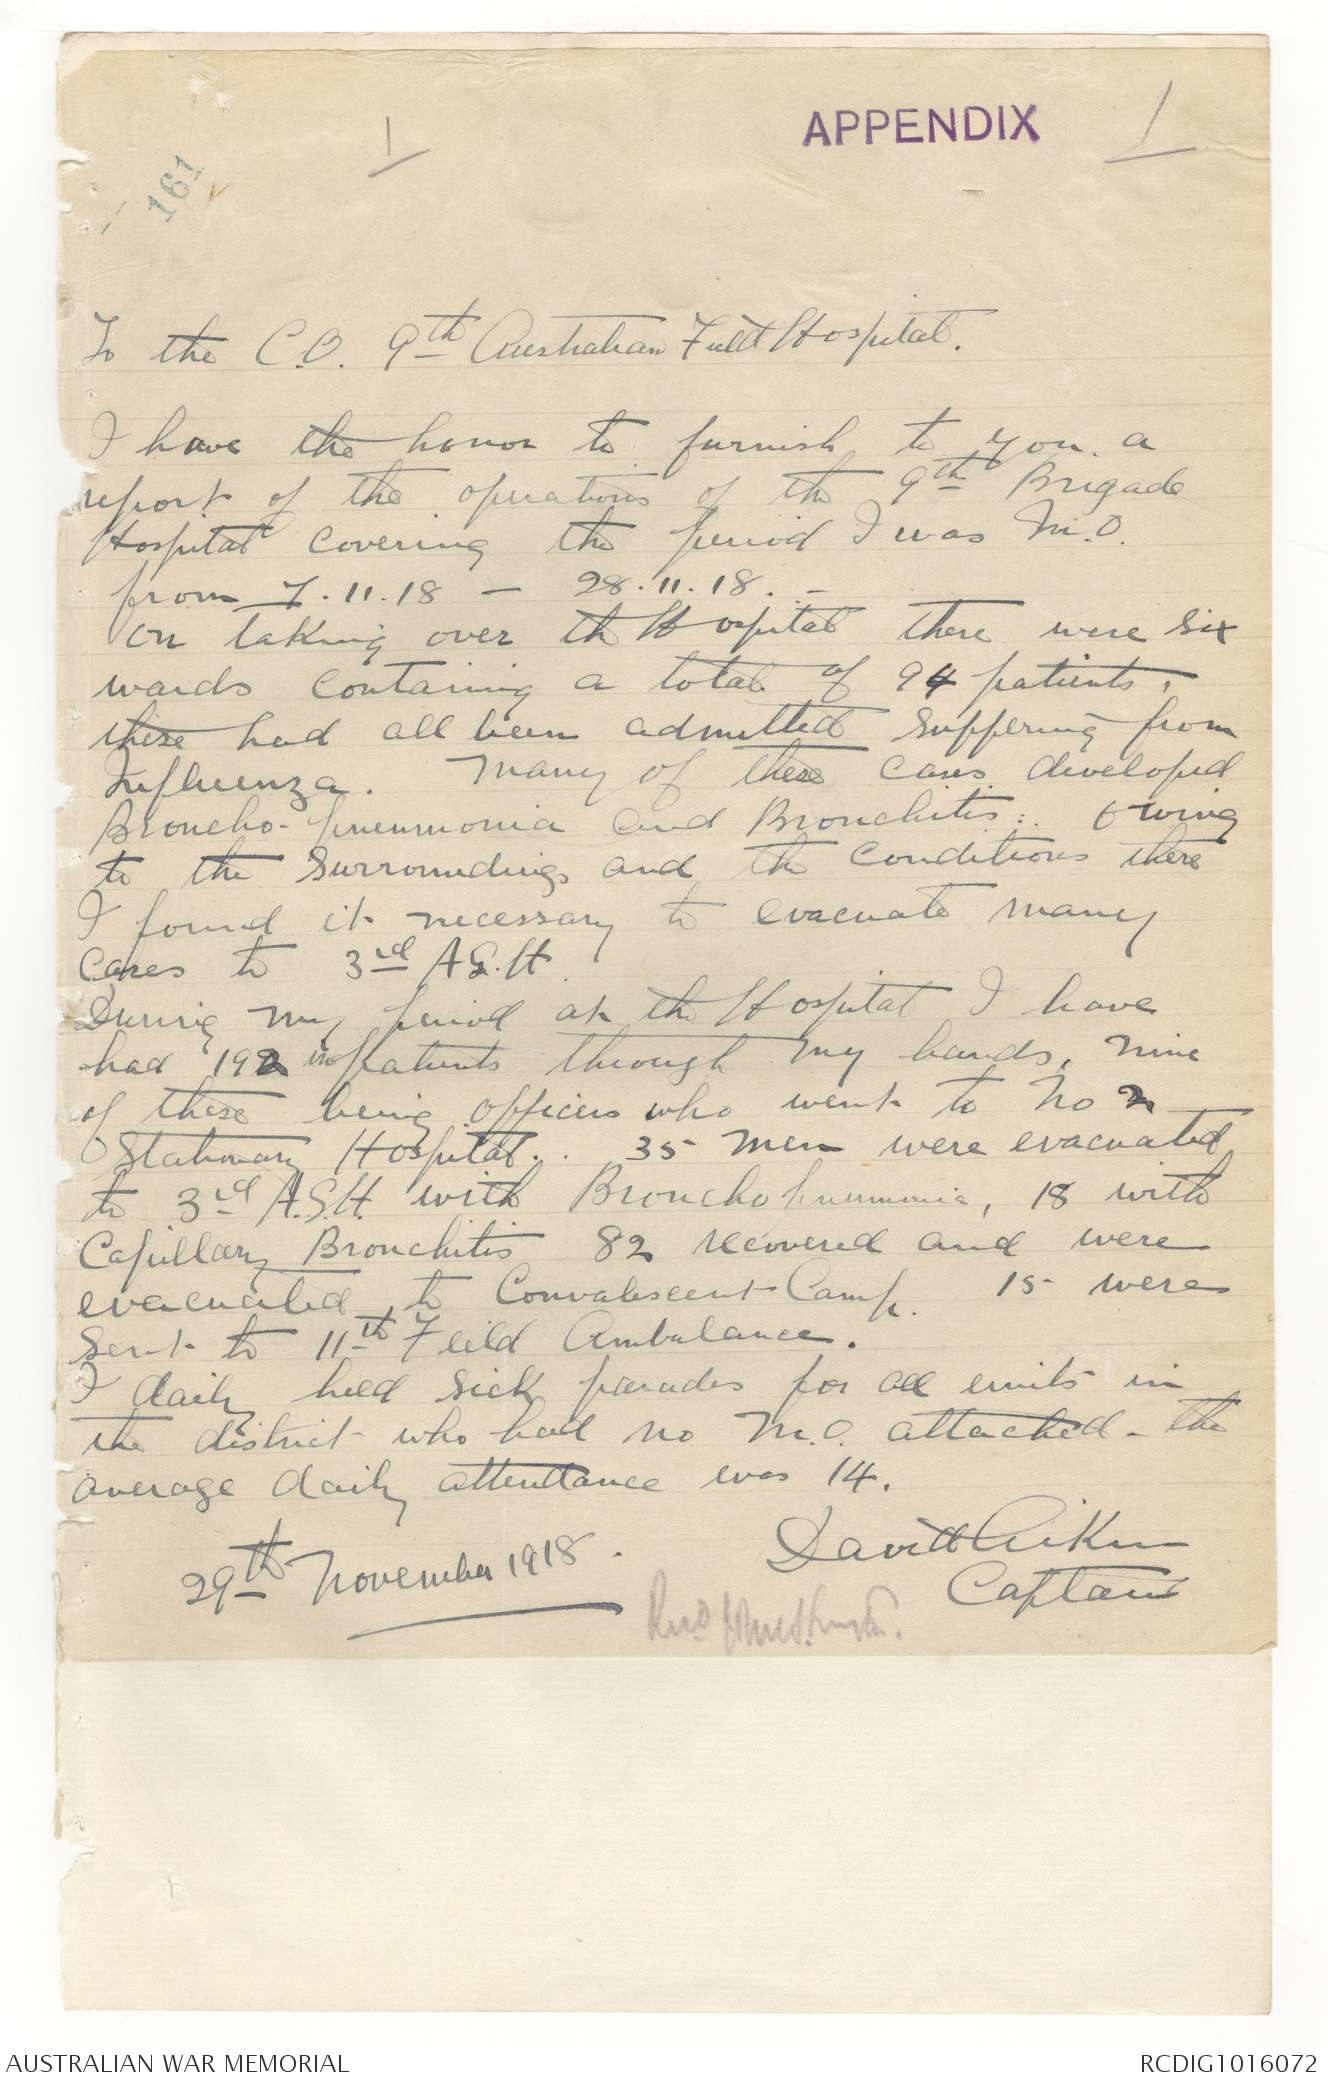 1
APPENDIX 1
161
To the C.O. 9th Australian Field Hospital.
I have the honor to furnish to you a
report of the operations of the 9th Brigade
Hospital covering the period I was M.O.
from 7.11.18 - 28.11.18. -
On taking over the Hospital there were six
wards containing a total of 94 patients,
these had all been admitted suffering from
Influenza. Many of these cases developed
Broncho-pneumonia and Bronchitis:. Owing
to the surroundings and the conditions there
I found it necessary to evacuate many
cases to 3rd A.G.H.
During my period at the Hospital I have
had 192 in patients through my hands, nine
of these being officers who went to No 2
Stationary Hospital. . 35 men were evacuated
to 3rd A.G.H. with Broncho pneumonia, 18 with
Capillary Bronchitis 82 recovered and were
evacuated to Convalescent Camp. 15 were
sent to 11th Feild Ambulance.
I daily held sick parades for all units in
the district who had no M.O. attached - the
average daily attendance was 14.
David Aiken
Captain
29th November 1918.
AUSTRALIAN WAR MEMORIAL
RCDIG1016072